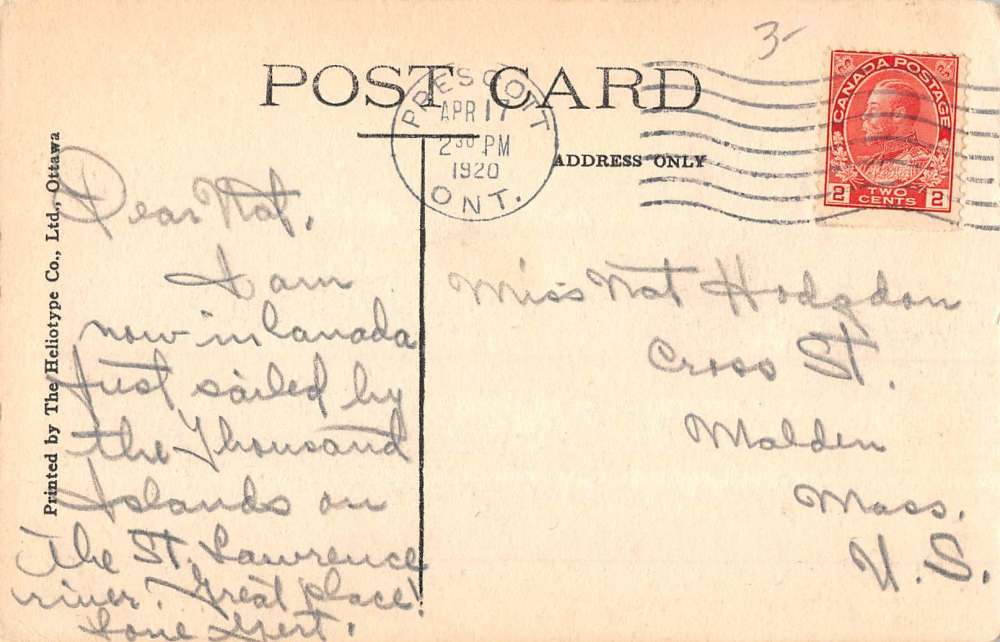 3-
POST CARD
ADDRESS ONLY
PRESCOTT
APR 17
2 30 PM
1920
ONT.
CANADA POSTAGE
2 TWO CENTS 2
Printed by The Heliotype Co., Ltd., Ottawa
Dear Nat,
I am
now in Canada
Just sailed by
the Thousand
Islands on
The St. Lawrence
river. Great place!
Love Gert.
Miss Nat Hodgdon
Cross St.
Malden
Mass.
U.S.